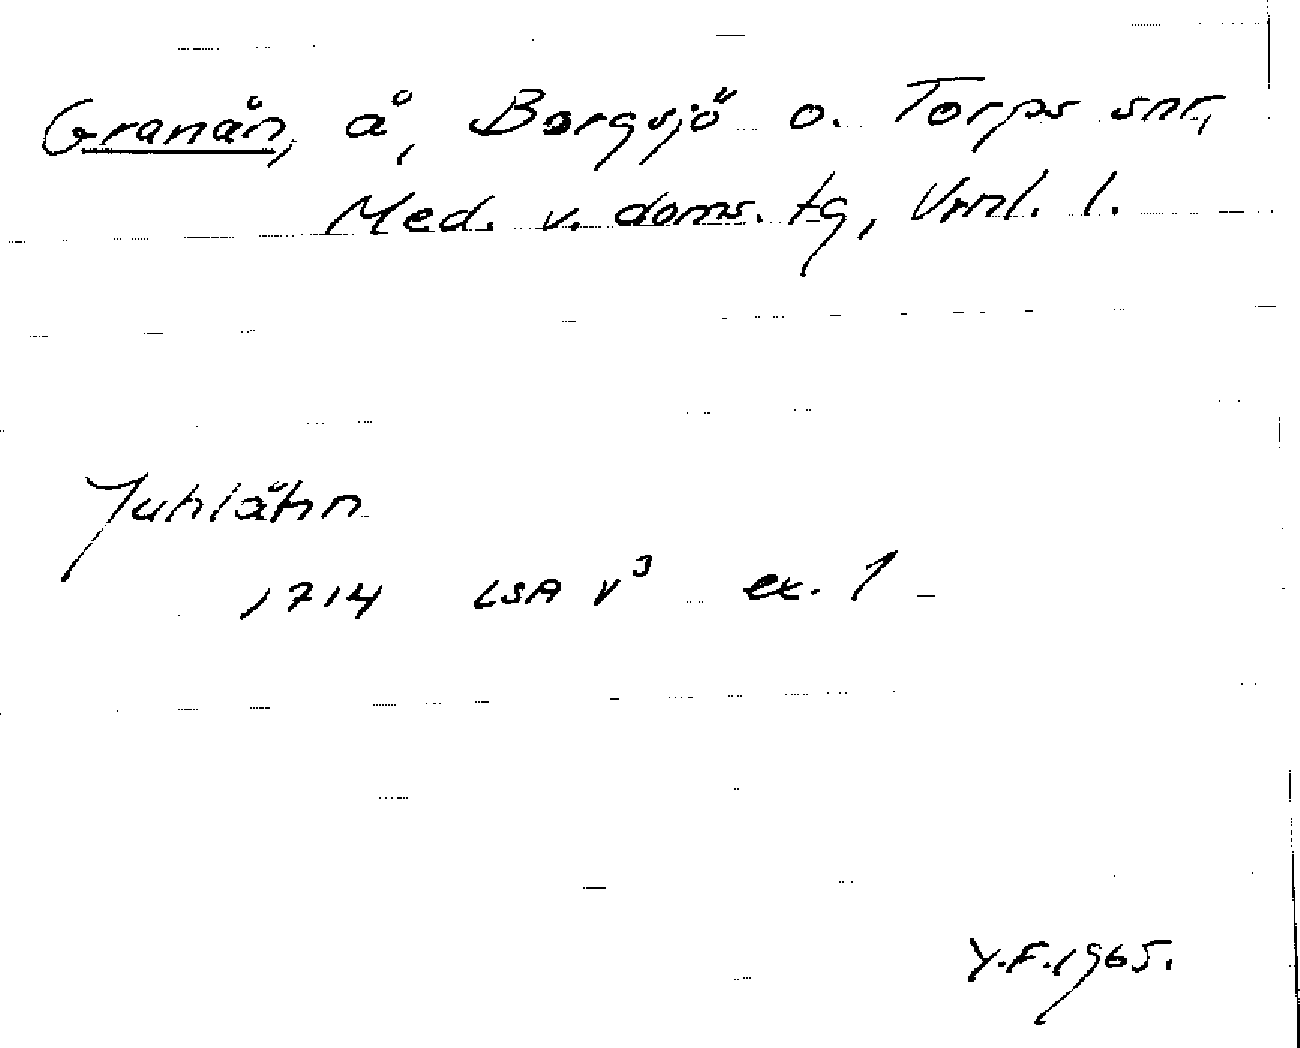 Granån, å, Borgsjö o. Torps snr,
Med. v. doms. tg, Vrnl. l.
Juhlåhn
1714 LSA V³ ex. 1
Y.F.1965.